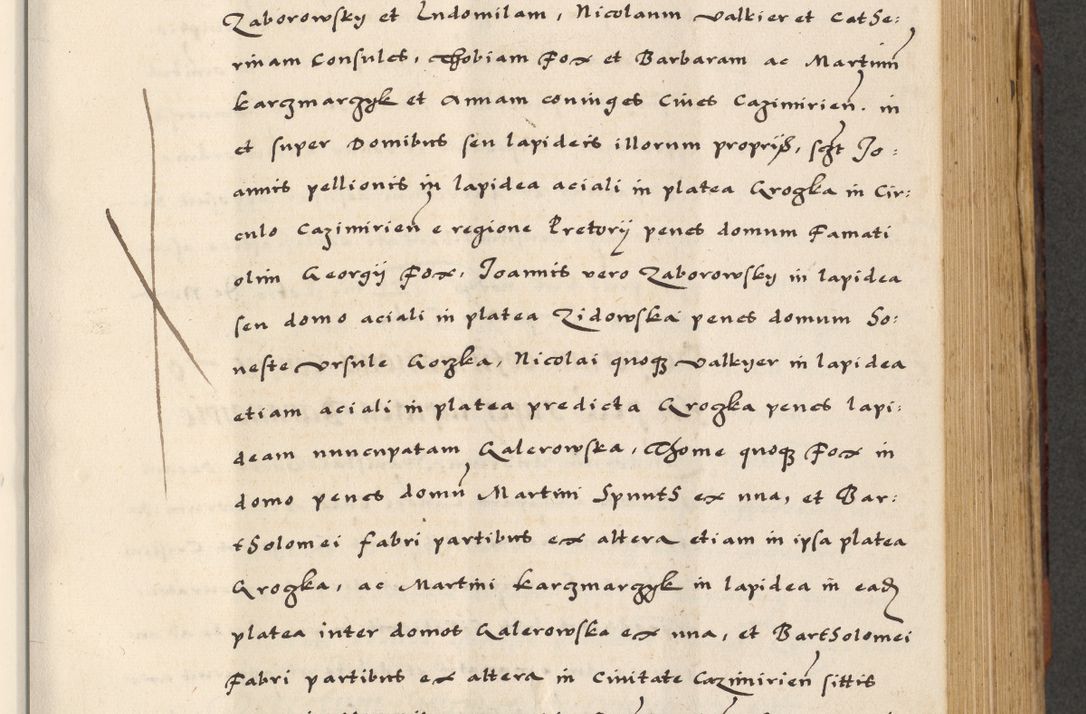 Zaborowsky et Ludomilam, Nicolaum Valkier et Cathe:
rinam Consules, Thobiam Fox et Barbaram ac Martinũ
karczmarczyk et Annam coniuges Ciues Cazimirieñ. in
et super Domibus seu lapideis illorum proprijs, scżt Jo:
annis pellionis in lapidea aciali in platea Grogka in Cir:
culo Cazimirieñ e regione Pretorij penes domum Famati
olim Georgij Fox, Joannis vero Zaborowsky in lapidea
seu domo aciali in platea Zidowska penes domum Ho:
neste Vrsule Gorzka, Nicolai quoqz Valkyer in lapidea
etiam aciali in platea predicta Grogka penes lapi:
deam nuncupatam Galerowska, Thome quoqz Fox in
domo penes domũ Martini Spunth ex una, et Bar:
tholomei Fabri partibus ex altera etiam in ipsa platea
Grogka, ac Martini karczmarczyk in lapidea in eadz
platea inter domos Galerowska ex una, et Bartholomei
Fabri partibus ex altera in Ciuitate Cazimirieñ sittis